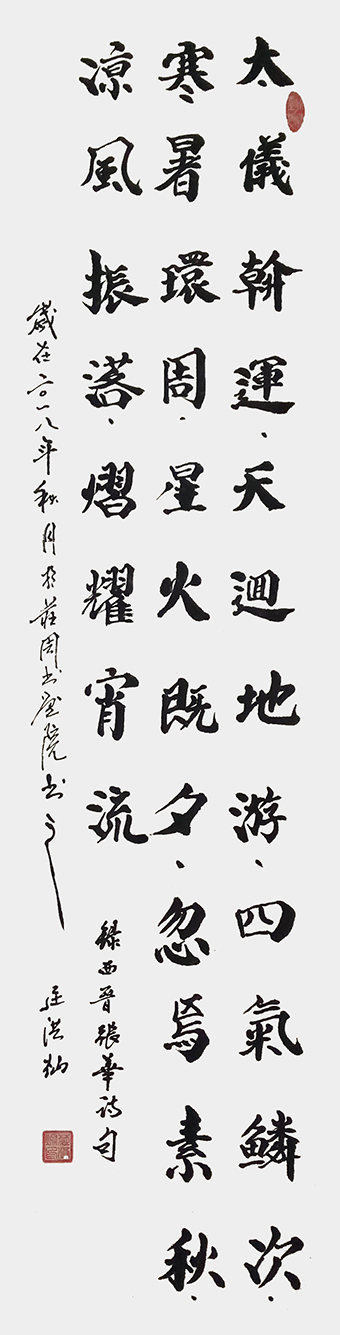 太儀斡運、天迴地游、四氣鱗次、
寒暑環周、星火既夕、忽焉素秋、
涼風振落、熠耀宵流
錄西晉張華詩句
歲在二〇一八年秋月於莊周書畫院書
洪